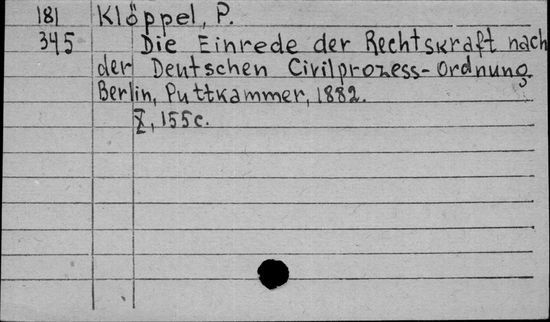 181 Klöppel, P.
345 Die Einrede der Rechtskraft nach
der Deutschen Civilprozess-Ordnung
Berlin, Puttkammer, 1882.
X, 155c.